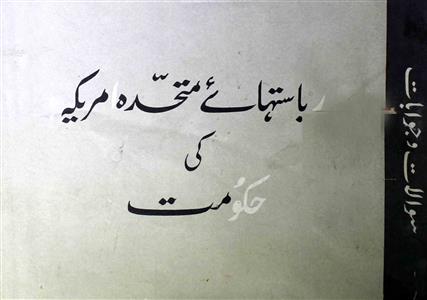 ریاستہائے متحدہ امریکہ
کی
حکومت
سوالات و جوابات